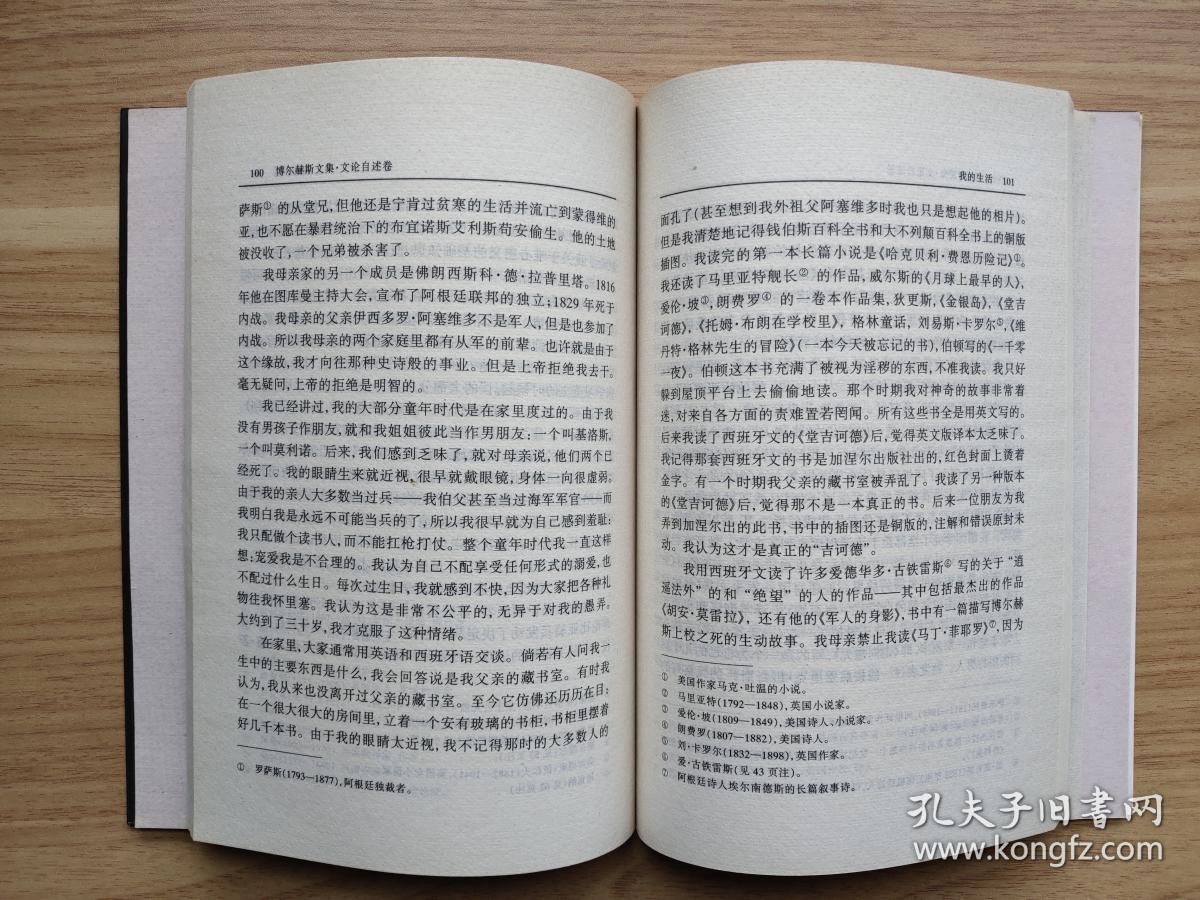 100 博尔赫斯文集·文论自述卷
萨斯① 的从堂兄,但他还是宁肯过贫寒的生活并流亡到蒙得维的
亚,也不愿在暴君统治下的布宜诺斯艾利斯苟安偷生。他的土地
被没收了,一个兄弟被杀害了。
我母亲家的另一个成员是佛朗西斯科·德·拉普里塔。1816
年他在图库曼主持大会,宣布了阿根廷联邦的独立;1829年死于
内战。我母亲的父亲伊西多罗·阿塞维多不是军人,但是也参加了
内战。所以我母亲的两个家庭里都有从军的前辈。也许就是由于
这个缘故,我才向往那种史诗般的事业。但是上帝拒绝我去干。
毫无疑问,上帝的拒绝是明智的。
我已经讲过,我的大部分童年时代是在家里度过的。由于我
没有男孩子作朋友,就和我姐姐彼此当作男朋友:一个叫基洛斯,
一个叫莫利诺。后来,我们感到乏味了,就对母亲说,他们两个已
经死了。我的眼睛生来就近视,很早就戴眼镜,身体一向很虚弱。
由于我的亲人大多数当过兵——我伯父甚至当过海军军官——而
我明白我是永远不可能当兵的了,所以我很早就为自己感到羞耻:
我只配做个读书人,而不能扛枪打仗。整个童年时代我一直这样
想:宠爱我是不合理的。我认为自己不配享受任何形式的溺爱,也
不配过什么生日。每次过生日,我就感到不快,因为大家把各种礼
物往我怀里塞。我认为这是非常不公平的,无异于对我的愚弄。
大约到了三十岁,我才克服了这种情绪。
在家里,大家通常用英语和西班牙语交谈。倘若有人问我一
生中的主要东西是什么,我会回答说是我父亲的藏书室。有时我
认为,我从来也没离开过父亲的藏书室。至今它仿佛还历历在目:
在一个很大很大的房间里,立着一个安有玻璃的书柜,书柜里摆着
好几千本书。由于我的眼睛太近视,我不记得那时的大多数人的
① 罗萨斯(1793—1877),阿根廷独裁者。
我的生活 101
面孔了(甚至想到我外祖父阿塞维多时我也只是想起他的相片)。
但是我清楚地记得钱伯斯百科全书和大不列颠百科全书上的铜版
插图。我读完的第一本长篇小说是《哈克贝利·费恩历险记》①。
我还读了马里亚特舰长② 的作品,威尔斯的《月球上最早的人》,
爱伦·坡③,朗费罗④ 的一卷本作品集,狄更斯,《金银岛》,《堂吉
诃德》,《托姆·布朗在学校里》,格林童话,刘易斯·卡罗尔⑤,《维
丹特·格林先生的冒险》(一本今天被忘记的书),伯顿写的《一千零
一夜》。伯顿这本书充满了被视为淫秽的东西,不准我读。我只好
躲到屋顶平台上去偷偷地读。那个时期我对神奇的故事非常着
迷,对来自各方面的责难置若罔闻。所有这些书全是用英文写的。
后来我读了西班牙文的《堂吉诃德》后,觉得英文版译本太乏味了。
我记得那套西班牙文的书是加涅尔出版社出的,红色封面上烫着
金字。有一个时期我父亲的藏书室被弄乱了。我读了另一种版本
的《堂吉诃德》后,觉得那不是一本真正的书。后来一位朋友为我
弄到加涅尔出的此书,书中的插图还是铜版的,注解和错误原封未
动。我认为这才是真正的“吉诃德”。
我用西班牙文读了许多爱德华多·古铁雷斯⑥ 写的关于“逍
遥法外”的和“绝望”的人的作品——其中包括最杰出的作品
《胡安·莫雷拉》,还有他的《军人的身影》,书中有一篇描写博尔赫
斯上校之死的生动故事。我母亲禁止我读《马丁·菲耶罗》⑦,因为
① 美国作家马克·吐温的小说。
② 马里亚特(1792—1848),英国小说家。
③ 爱伦·坡(1809—1849),美国诗人、小说家。
④ 朗费罗(1807—1882),美国诗人。
⑤ 刘·卡罗尔(1832—1898),英国作家。
⑥ 爱·古铁雷斯(见43页注)。
⑦ 阿根廷诗人埃尔南德斯的长篇叙事诗。
孔夫子旧书网
www.kongfz.com